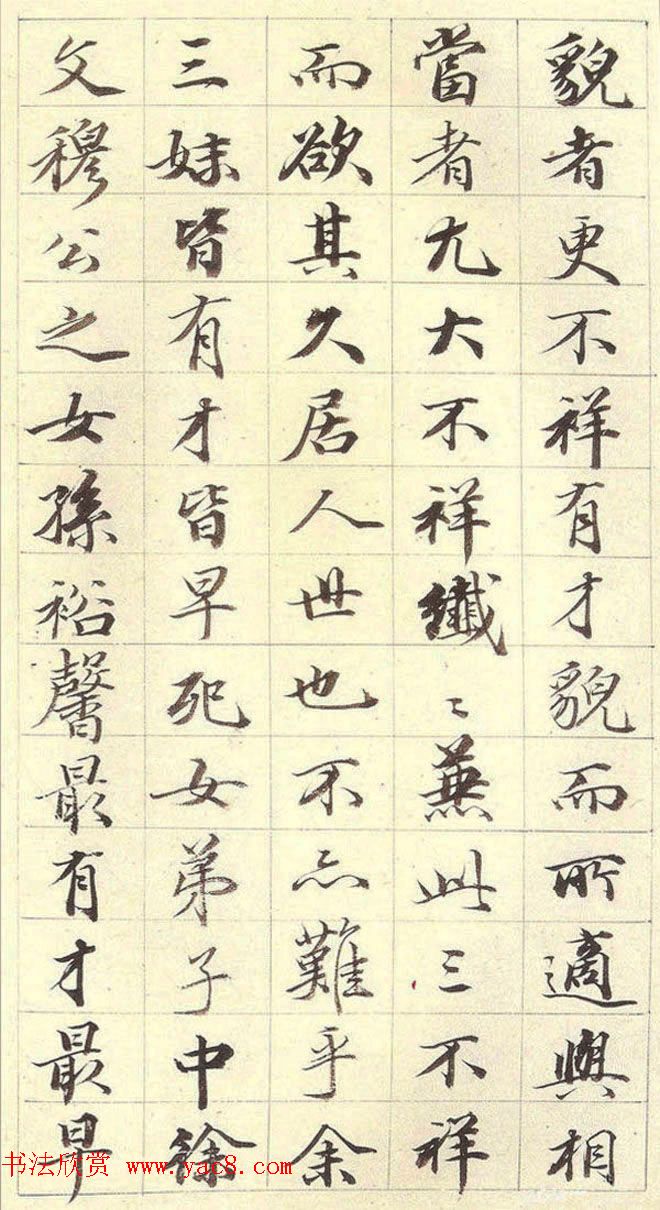 貌者更不祥有才貌而所適與相
當者尤大不祥纖〻兼此三不祥
而欲其久居人世也不亦難乎余
三妹皆有才皆早死女弟子中徐
文穆公之女孫裕馨最有才最早
书法欣赏 www.yac8.com